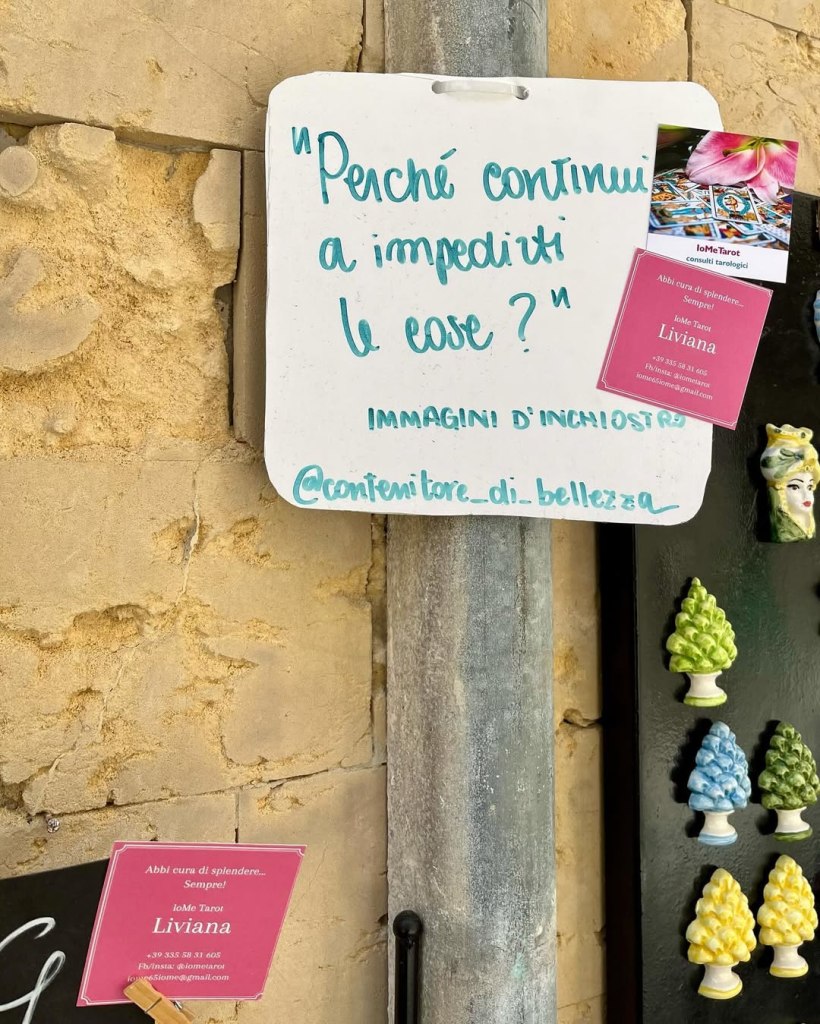 "Perché continui
a impedirti
le cose?"
IMMAGINI D'INCHIOSTRO
@contenitore_di_bellezza
IoMeTarot
consulti tarologici
Abbi cura di splendere...
Sempre!
IoMe Tarot
Liviana
+39 335 58 31 605
Fb/Insta: @iometarot
iome65iome@gmail.com
Abbi cura di splendere...
Sempre!
IoMe Tarot
Liviana
+39 335 58 31 605
Fb/Insta: @iometarot
iome65iome@gmail.com